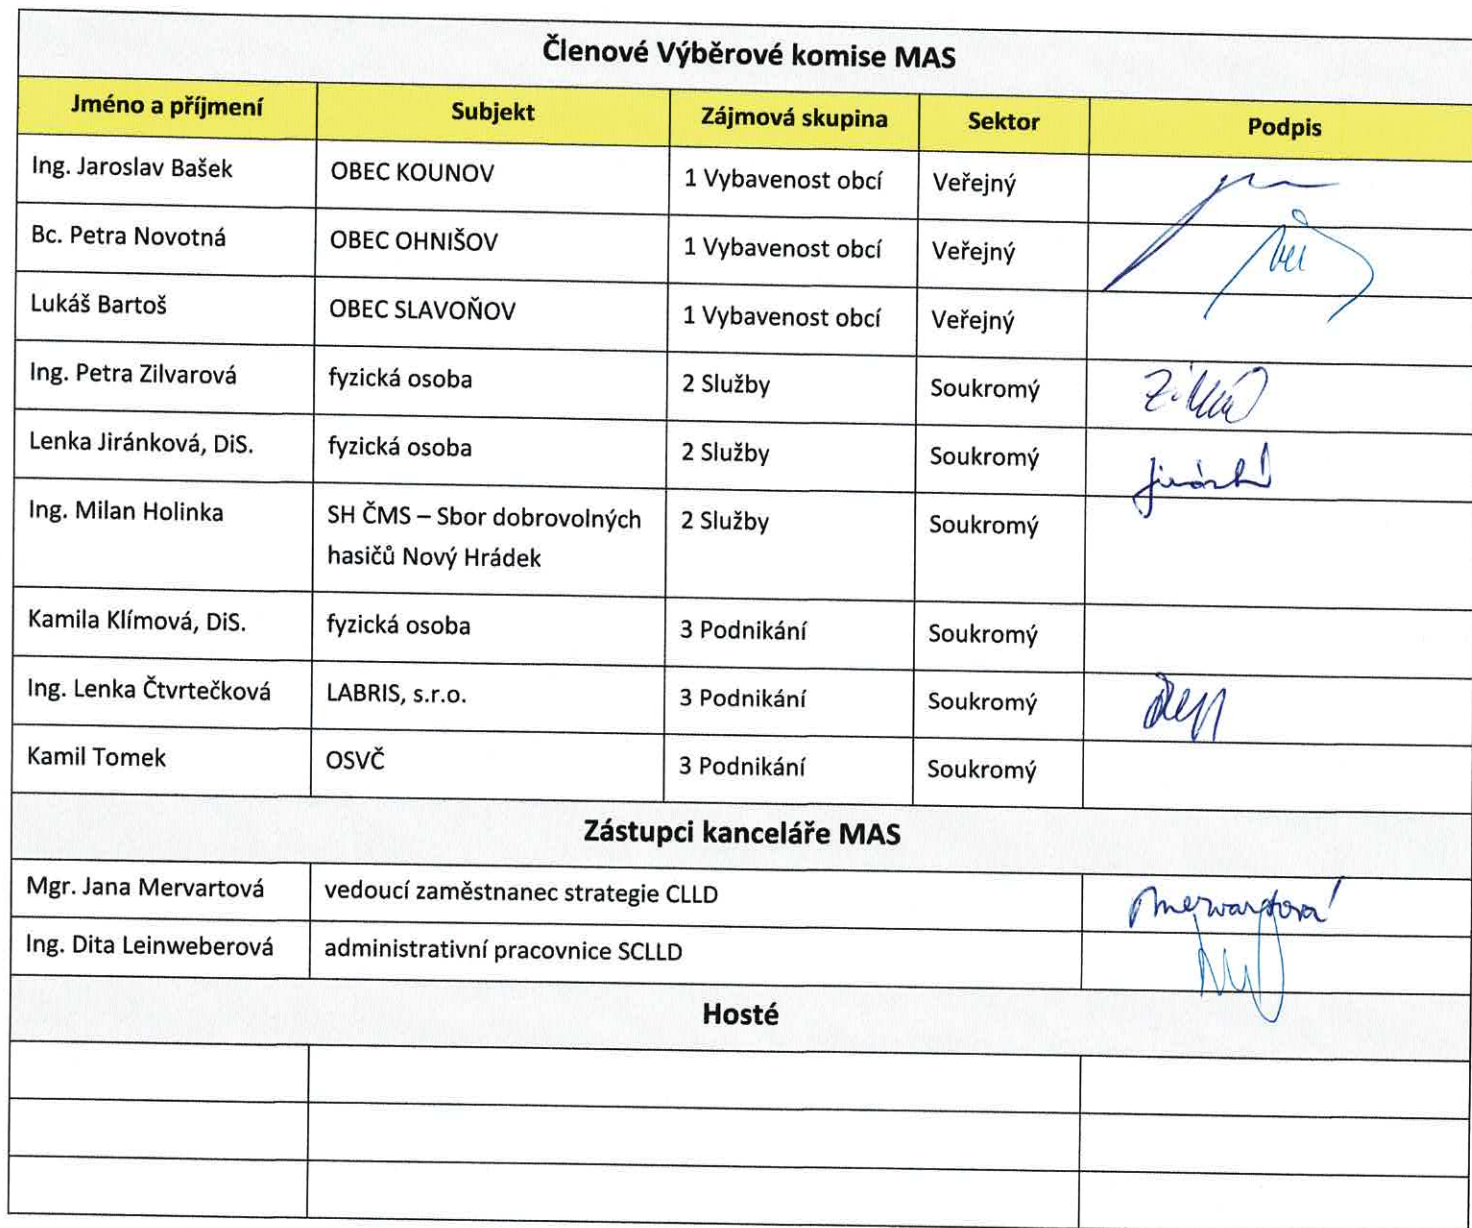 Členové Výběrové komise MAS
Jméno a příjmení Subjekt Zájmová skupina Sektor Podpis
Ing. Jaroslav Bašek OBEC KOUNOV 1 Vybavenost obcí Veřejný
Bc. Petra Novotná OBEC OHNIŠOV 1 Vybavenost obcí Veřejný
Lukáš Bartoš OBEC SLAVOŇOV 1 Vybavenost obcí Veřejný
Ing. Petra Zilvarová fyzická osoba 2 Služby Soukromý
Lenka Jiránková, DiS. fyzická osoba 2 Služby Soukromý
Ing. Milan Holinka SH ČMS – Sbor dobrovolných 2 Služby Soukromý
hasičů Nový Hrádek
Kamila Klímová, DiS. fyzická osoba 3 Podnikání Soukromý
Ing. Lenka Čtvrtečková LABRIS, s.r.o. 3 Podnikání Soukromý
Kamil Tomek OSVČ 3 Podnikání Soukromý
Zástupci kanceláře MAS
Mgr. Jana Mervartová vedoucí zaměstnanec strategie CLLD Mervartová
Ing. Dita Leinweberová administrativní pracovnice SCLLD
Hosté